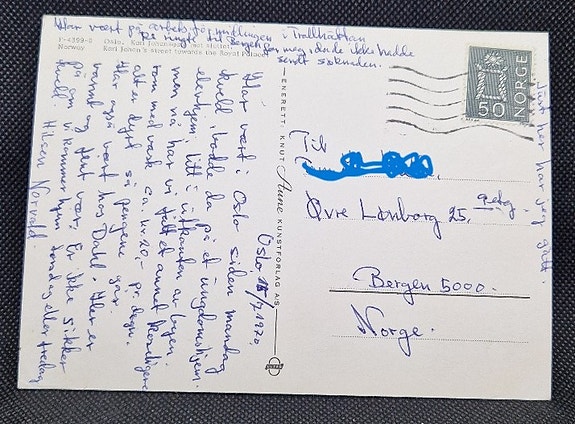 Har vært på arbeidsformidlingen i Trollhättan
Bergen for meg, da de ikke hadde
sendt søknaden.
1-4399-8 Oslo. Karl Johansgate mot slottet.
Norway Karl Johan's street towards the Royal Palace.
Oslo 15/7, 1970.
Har vært i Oslo siden mandag
kveld, bodde da på et ungdomshjem.
elevhjem, litt i utkanten av byen.
men nå har vi fått et annet herligere
rom med vask ca. kr. 20,- pr. døgn.
alt er dyrt så pengene går.
Har også vært hos Dahl. Her er
varmt og pent vær. Er ikke sikker
på om vi kommer hjem torsdag eller fredag
kveld. Hilsen Norvald.
ENERETT: KNUT Aune KUNSTFORLAG A/S
NORGE
50
Til
Øvre Lønborg 25,
Bergen 5000.
Norge.
Just her har jeg gått.